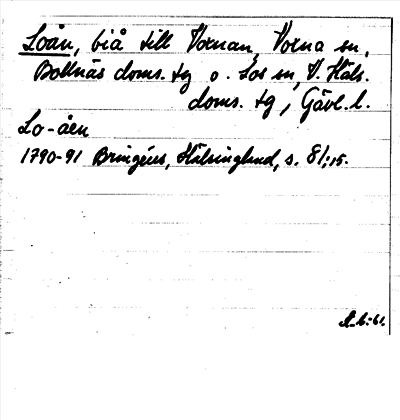 Loån, biå till Voxnan, Voxna sn,
Bollnäs doms. tg o. Los sn, V. Häls.
doms. tg, Gävl. l.
Lo-åen
1790-91 Bringéus, Hälsingland, s. 81; 15.